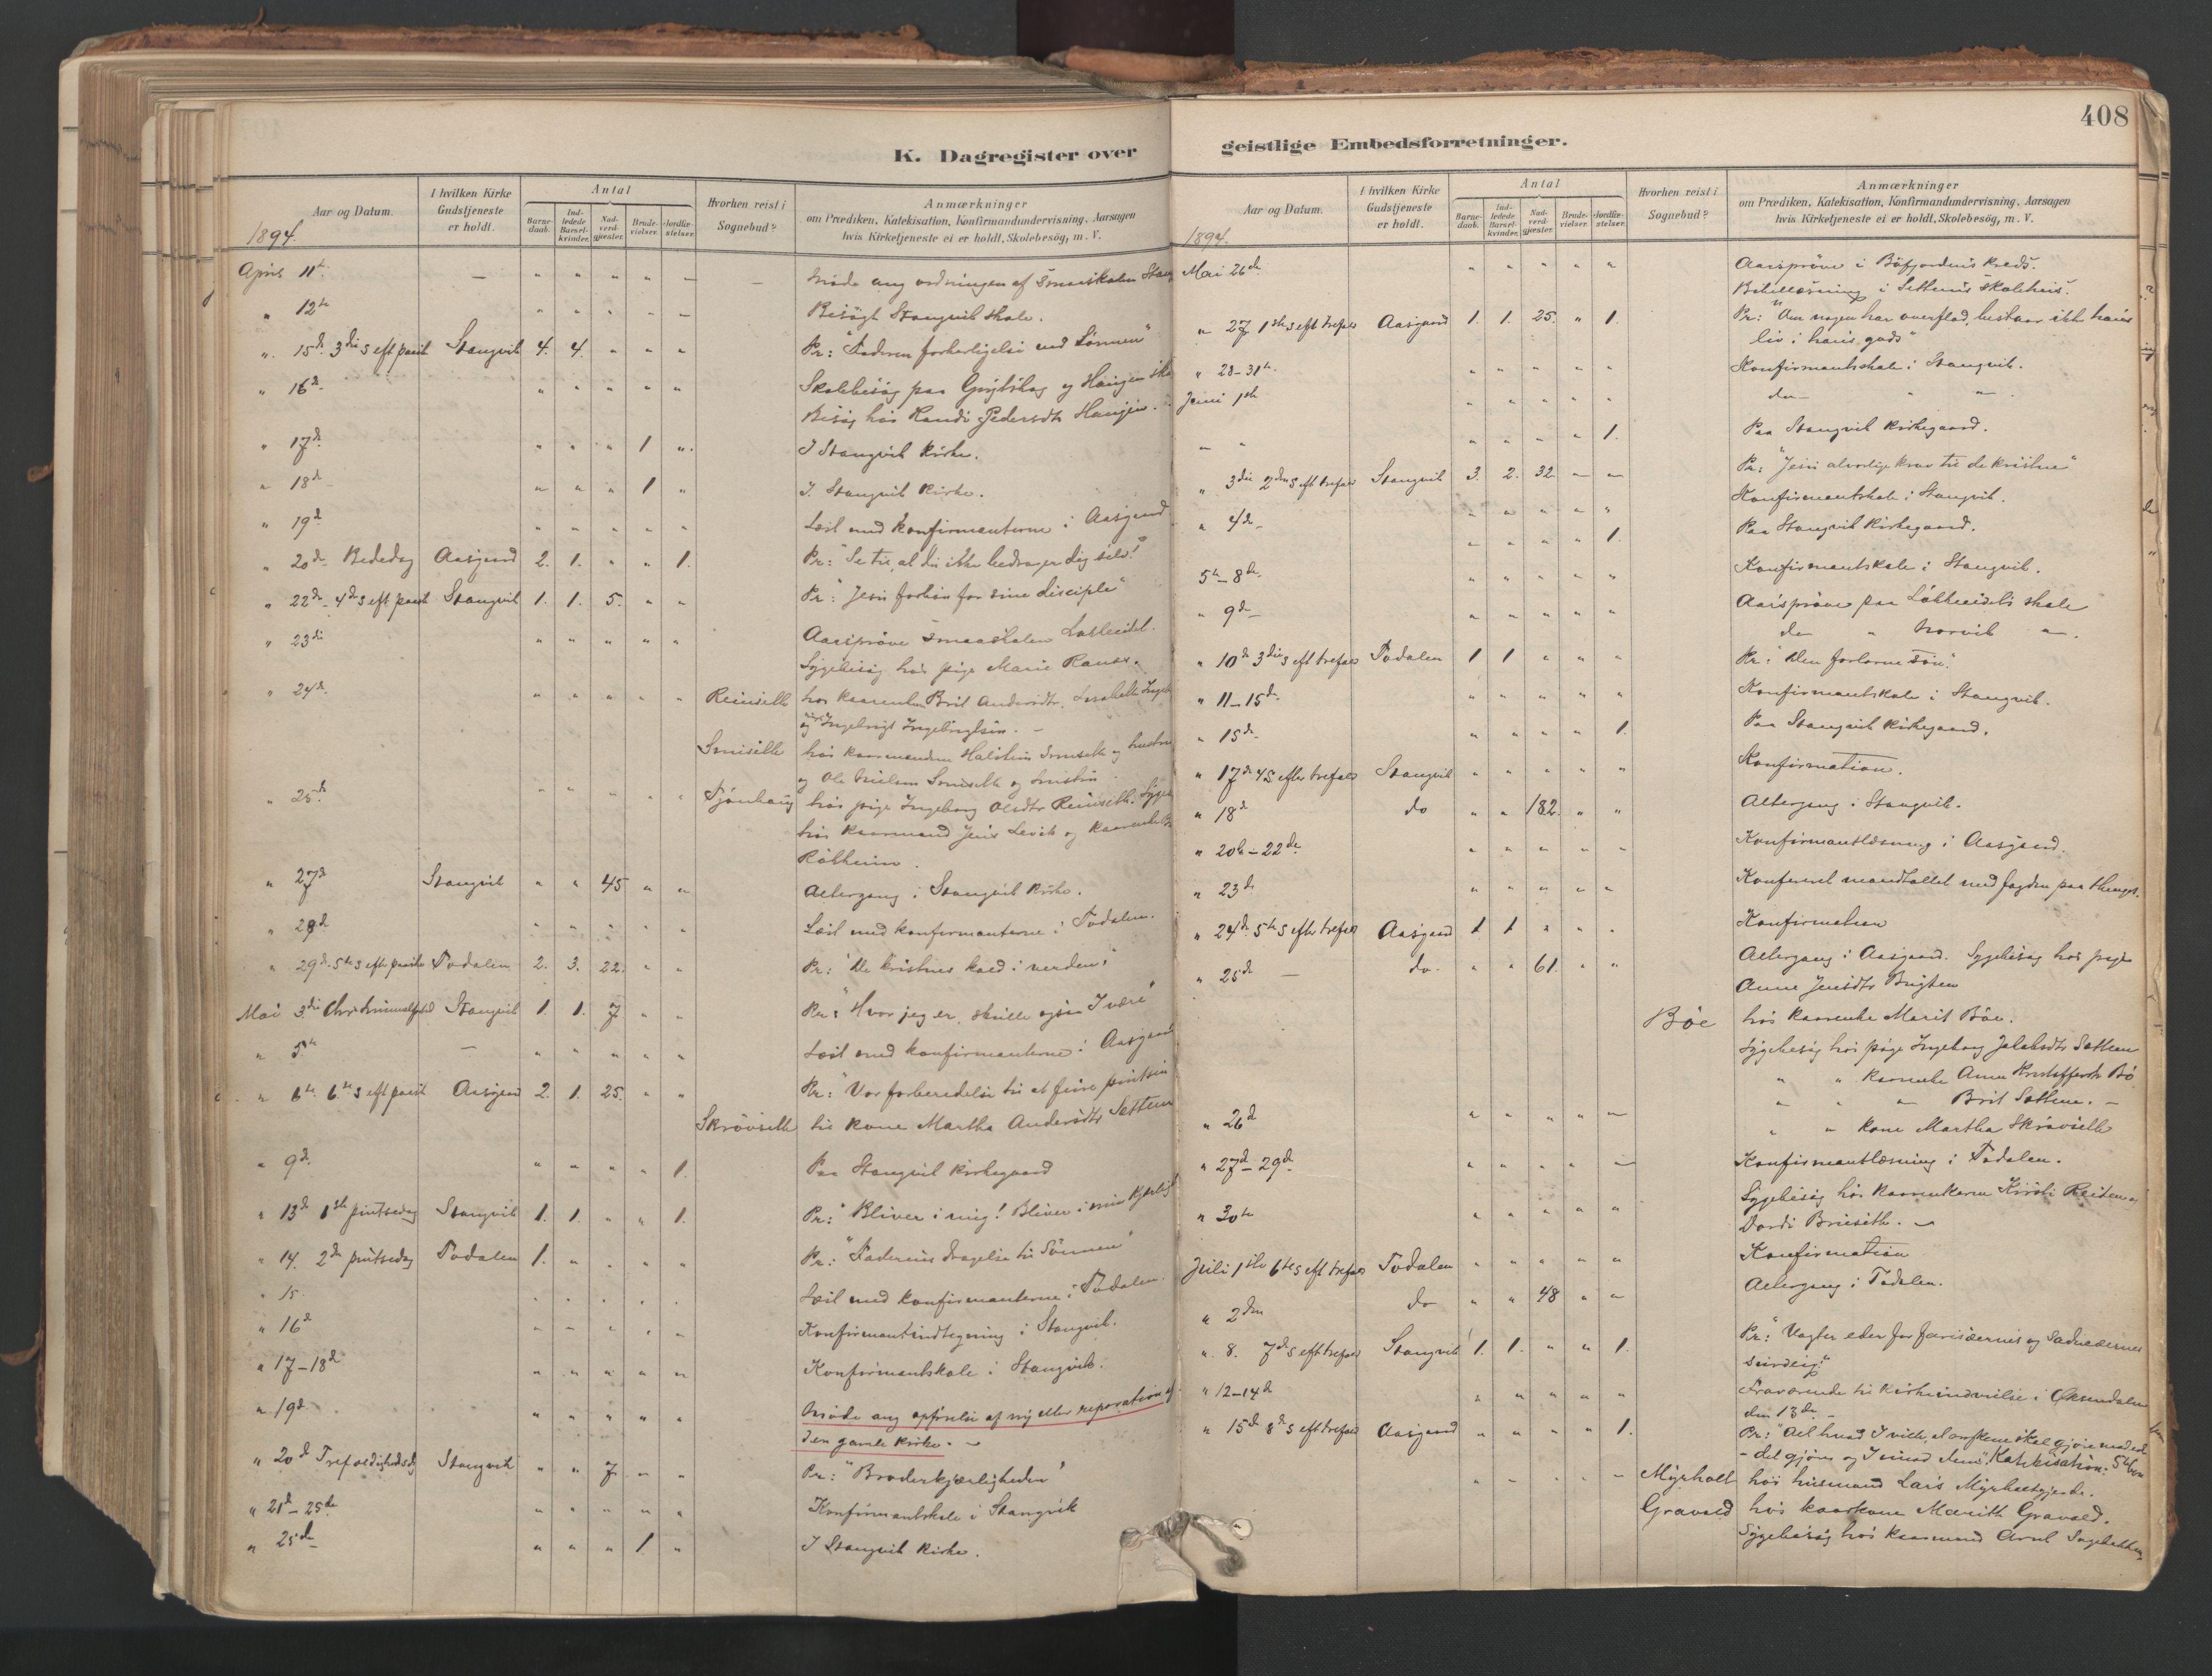 408
K. Dagregister over
geistlige Embedsforretninger.
Aar og Datum.
I hvilken Kirke Gudstjeneste er holdt.
Antal
Barnedaab.
Indledede Barselkvinder.
Nadverdgjæster.
Brudevielser.
Jordfæstelser.
Hvorhen reist i Sognebud?
Anmærkninger
om Prædiken, Katekisation, Konfirmandundervisning, Aarsagen
hvis Kirketjeneste ei er holdt, Skolebesøg, m. V.
1894.
April 11te — " " " " — — Møde ang ordningen af smaaskolen Stang
" 12te " " " " — Besøgt Stangvik skole.
" 15de 3die s eft paask Stangvik 4. 4. " " " Pr: "Faderen forherligelse ved Sønnen"
" 16de " " " " " Skolebesøg paa og Haugen
Besøg hos Randi Pedersdtr Haugen.
" 17de " " " 1 " I Stangvik kirke.
" 18de " " " 1 " I Stangvik kirke.
" 19de " " " " " Læst med konfirmanterne i Aasgaard
" 20de Bededag Aasgaard 2. 1. " " 1. Pr: "Se til, at du ikke bedrager dig selv!"
" 22de 4de s eft paask Stangvik 1. 1. 5. " " Pr: "Jesu forbøn for sine disciple"
" 23die " " " " " Aarsprøve smaaskolen
Sygebesøg hos pige Marie
" 24de " " " " " hos kaarenken Brit Andersdtr.
og Ingebrigt Ingebrigtsen. —
hos kaarmanden Halstein og hustru
og Ole Nielsen og hustru
" 25de " " " " " hos pige Ingeborg Olsdtr
hos kaarmand Jens og kaarenke
" 27de Stangvik " " 45 " " Altergang i Stangvik kirke.
" 28de " " " " " Læst med konfirmanterne i Todalen.
" 29de 5te s eft paaske Todalen 2. 3. 22. " " Pr: "De kristnes kald i verden"
Mai 3die Chr. himmelfartsd Stangvik 1. 1. 7 " " Pr: "Hvor jeg er, skulle ogsaa I være"
" 5te — " " " " " Læst med konfirmanterne i Aasgaard
" 6te 6te s eft paask Aasgaard 2. 1. 25. " " Pr: "Vor forberedelse til at feire pintsen
Skrøvseth til kone Martha Andersdtr Settem
" 9de " " " " 1. Paa Stangvik kirkegaard
" 13de 1ste pintsedag Stangvik 1. 1. " " 1. Pr: "Bliver i mig! Bliver i min kjærlighed
" 14. 2de pintsedag Todalen 1. " " " " Pr: "Faderens dragelse til Sønnen"
" 15 " " " " " Læst med konfirmanterne i Todalen.
" 16de " " " " " Konfirmantindtegning i Stangvik.
" 17–18de " " " " " Konfirmantskole i Stangvik.
" 19de " " " " " Møde ang opførelse af ny eller reparation af
den gamle kirke. —
" 20de Trefoldighedsdg Stangvik " " 7 " " Pr: "Broderkjærligheden"
" 21de – 25de " " " " " Konfirmantskole i Stangvik
" 25de " " " 1. " I Stangvik kirke.
Aar og Datum.
I hvilken Kirke Gudstjeneste er holdt.
Antal
Barnedaab.
Indledede Barselkvinder.
Nadverdgjæster.
Brudevielser.
Jordfæstelser.
Hvorhen reist i Sognebud?
Anmærkninger
om Prædiken, Katekisation, Konfirmandundervisning, Aarsagen
hvis Kirketjeneste ei er holdt, Skolebesøg, m. V.
1894.
Mai 26de " " " " " Aarsprøve i Bøfjordens kreds.
Bibellæsning i Settems skolehus.
" 27 1ste s eft trefold Aasgaard 1. 1. 25. " 1. Pr: "Om nogen har overflod, bestaar ikke hans
liv i hans gods"
" 28–31te " " " " " Konfirmantskole i Stangvik.
Juni 1ste " " " " " do — " "
" " " " " 1. Paa Stangvik kirkegaard.
" 3die 2den s eft trefold Stangvik 3. 2. 32 — — Pr: "Jesu alvorlige krav til de kristne"
" 4de " " " " " Konfirmantskole i Stangvik.
" " " " 1. Paa Stangvik kirkegaard.
5te – 8de " " " " " Konfirmantskole i Stangvik.
" 9de " " " " " Aarsprøve paa skole
do " Norvik "
" 10de 3die s eft trefold Todalen 1 1 " " " Pr: "Den forlorne søn".
" 11–15de " " " " " Konfirmantskole i Stangvik.
" 15de " " " " 1. Paa Stangvik kirkegaard.
" 17de 4 s efter trefold Stangvik " " " " " Konfirmation.
" 18de do " " 182. " " Altergang i Stangvik.
" 20de – 22de " " " " " Konfirmantlæsning i Aasgaard.
" 23de " " " " " Konfereret mandtallet med fogden paa
" 24de 5te s efter trefold Aasgaard 1 1 " " " Konfirmation
" 25de — do. " " 61. " " Altergang i Aasgaard. Sygebesøg hos pige
Anne Jensdtr
Bøe hos kaarenke Marit Bøe.
Sygebesøg hos pige Ingeborg Jakobsdtr Settem
" " kaarenke Anne Bø
" " " Brit Settem. —
" 26de " " " " — " " kone Martha Skrøvseth
" 27de – 29de " " " " — Konfirmantlæsning i Todalen.
" 30te " " " " " Sygebesøg hos kaarenkerne
Dordi —
Juli 1ste 6te s eft trefold Todalen " " " " " Konfirmation
" 2den do " " 48 " " Altergang i Todalen.
" 8. 7de s eft trefold Stangvik 1. 1. " " 1. Pr: "Vogter eder for farisæernes og saducæernes
surdeig".
" 12–14de " " " " " Fraværende til kirkeindvielse i Øksendalen
den 13de. —
" 15de 8de s eft trefold Aasgaard " " " " 1. Pr: "Alt hvad I ville, at menneskene skal gjøre mod eder
– det gjører og I imod dem". Katekisation:
Myrholt hos husmand Lars
Gravold hos kaarkone Marith Gravold.
Sygebesøg hos kaarmand Arnt